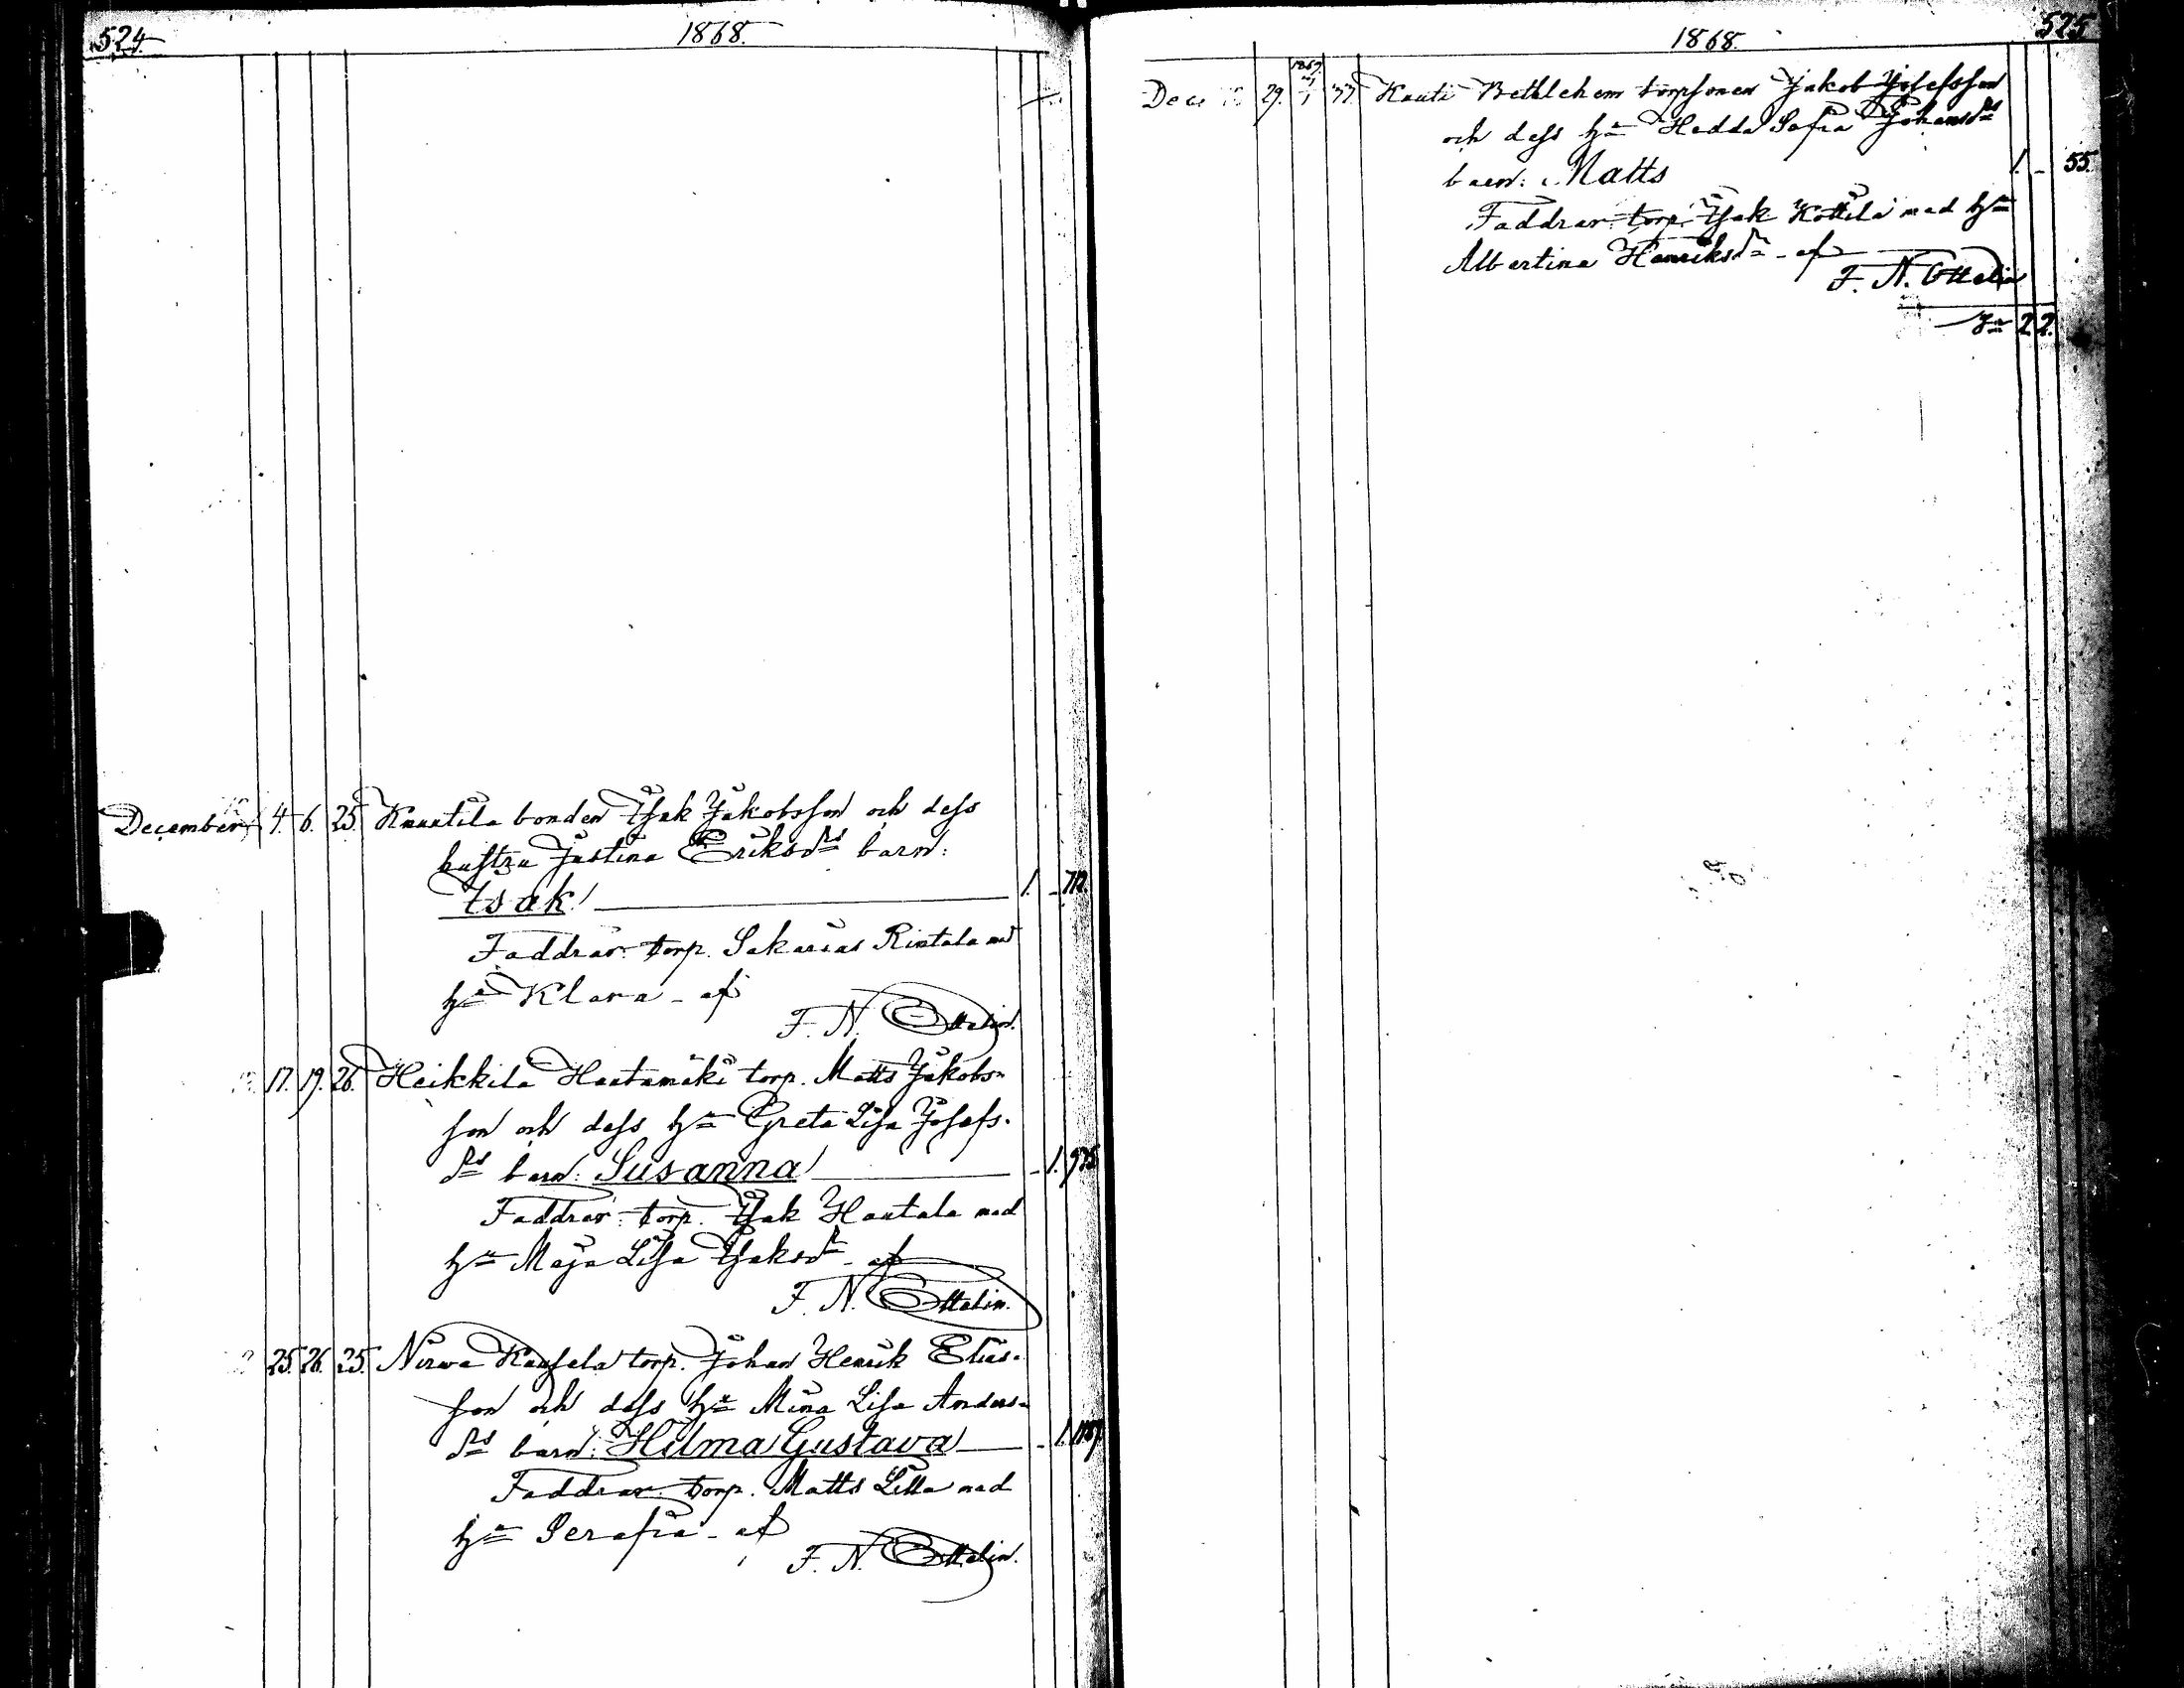 524.
1868.
December 4. 6. 25. Knuutila bonden Isak Jakobsson och dess
hustru Justina Eriksdr barn:
Isak 1. - 712.
Faddrar: torp. Sakarias Rintala med
hu Klara - af
F. N. Ottelin.
17. 19. 26. Heikkilä Haatamäki torp. Matts Jakobs-
son och dess hu Greta Lisa Josefs-
dr barn: Susanna - 1. 975
Faddrar: torp. Isak Hautala med
hu Maja Lisa Isaksdr - af
F. N. Ottelin.
25. 26. 25. Nirva torp. Johan Henrik Elias-
son och dess hu Mina Lisa Anders-
dr barn: Hilma Gustava - 1.
Faddrar: torp. Matts Lilla med
hu Serafia - af
F. N. Ottelin.
1868.
525
1869
Dec 29. 1/1 Kauti Bethlehem torpsonen Jakob Josefsson
och dess hu Hedda Sofia Johansdr
barn: Matts 1. - 55.
Faddrar: torp. Isak Kottila med hu
Albertina Henriksdr - af
F. N. Ottelin
Sa 2 2.